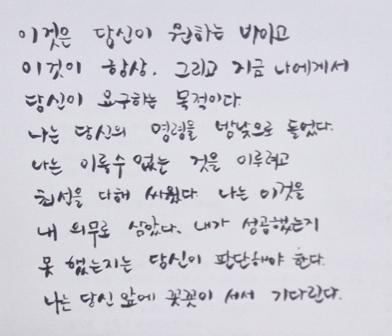 이것은 당신이 원하는 바이고
이것이 항상, 그리고 지금 나에게서
당신이 요구하는 목적이다.
나는 당신의 명령을 밤낮으로 들었다.
나는 이룰수 없는 것을 이루려고
최선을 다해 싸웠다 나는 이것을
내 의무로 삼았다. 내가 성공했는지
못 했는지는 당신이 판단해야 한다.
나는 당신 앞에 꼿꼿이 서서 기다린다.